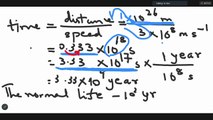 time = distance / speed = 1 × 10^26 m / 3 × 10^8 m s^-1
= 0.333 × 10^18
= 3.33 × 10^17 s × 1 year / 10^8 s
= 3.33 × 10^9 year
The normal life ~ 10^2 yr